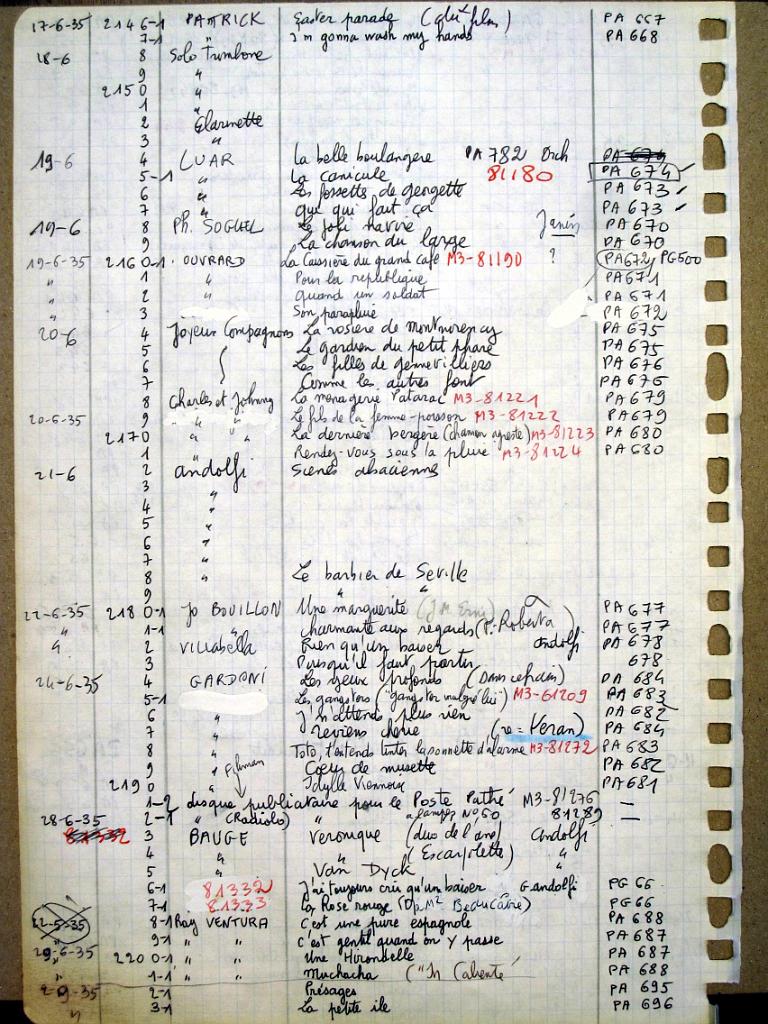 17-6-35 2146-1 PATRICK Easter parade (du film) PA 667
7-1 " I'm gonna wash my hands PA 668
18-6 8 Solo Trombone
9 "
2150 "
1 "
2 Clarinette
3 "
19-6 4 LUAR La belle boulangère PA 782 Orch PA 674
5-1 " La canicule 81180 PA 674
6 " Les fossettes de georgette PA 673
7 " qué qui fait ça PA 673
19-6 8 Ph. SOGUEL Le joli navire Janin PA 670
9 " La chanson du large PA 670
19-6-35 2160-1 OUVRARD La Caissière du grand café M3-81190 ? PA672 PG500
" 1 " Pour la republique PA671
" 2 " quand un soldat PA 671
3 Son parapluie PA 672
20-6 4 Joyeux Compagnons La rosière de montmorency PA675
5 Le gardien du petit phare PA675
6 Les filles de gennevilliers PA 676
7 Comme les autres font PA 676
8 Charles et Johnny La menagerie Patarac M3-81221 PA679
20-6-35 9 " " Le fils de la femme-poisson M3-81222 PA679
2170 " " La dernière bergère (chanson agreste) M3-81223 PA 680
1 " Rendez-vous sous la pluie M3-81224 PA 680
21-6 2 andolfi Scènes alsaciennes
3
4 "
5 "
6 "
7 "
8 " Le barbier de Seville
9 "
22-6-35 2180-1 Jo BOUILLON Une marguerite PA 677
" 1-1 " charmante aux regards (f. Roberta) PA 677
" 2 VILLABELLA Rien qu'un baiser andolfi PA 678
3 Puisqu'il faut partir 678
24-6-35 4 GARDONI Les yeux profonds (Dans refrain) PA 684
5-1 Les gangsters ("gangster malgré lui") M3-61209 PA 683
6 " J'n'attends plus rien PA 682
7 " reviens cherie (re = Veran) PA 684
8 " Toto, t'entends tinter la sonnette d'alarme M3-81272 PA 683
9 " Coeur de musette PA 682
2190 Fishman Idylle Viennoise PA 681
1-2 disque publicitaire pour le Poste Pathé M3-81276
28-6-35 2-1 " (Radiolo) " à lampes N° 60 81289 —
3 BAUGE Veronique (duo de l'ane) andolfi
4 " " (Escarpolette) "
5 " Van Dyck "
6-1 81332 J'ai toujours cru qu'un baiser G. andolfi PG 66
7-1 81333 La Rose rouge (Dp M² Beaucaire) PG 66
22-5-35 8-1 Ray VENTURA C'est une pure espagnole PA 688
" 9-1 " " c'est gentil quand on y passe PA 687
29-6-35 2200-1 " " Une Hirondelle PA 687
" 1-1 " " Muchacha ("In Caliente" PA 688
2-9-35 2-1 Présages PA 695
" 3-1 La petite ile PA 696